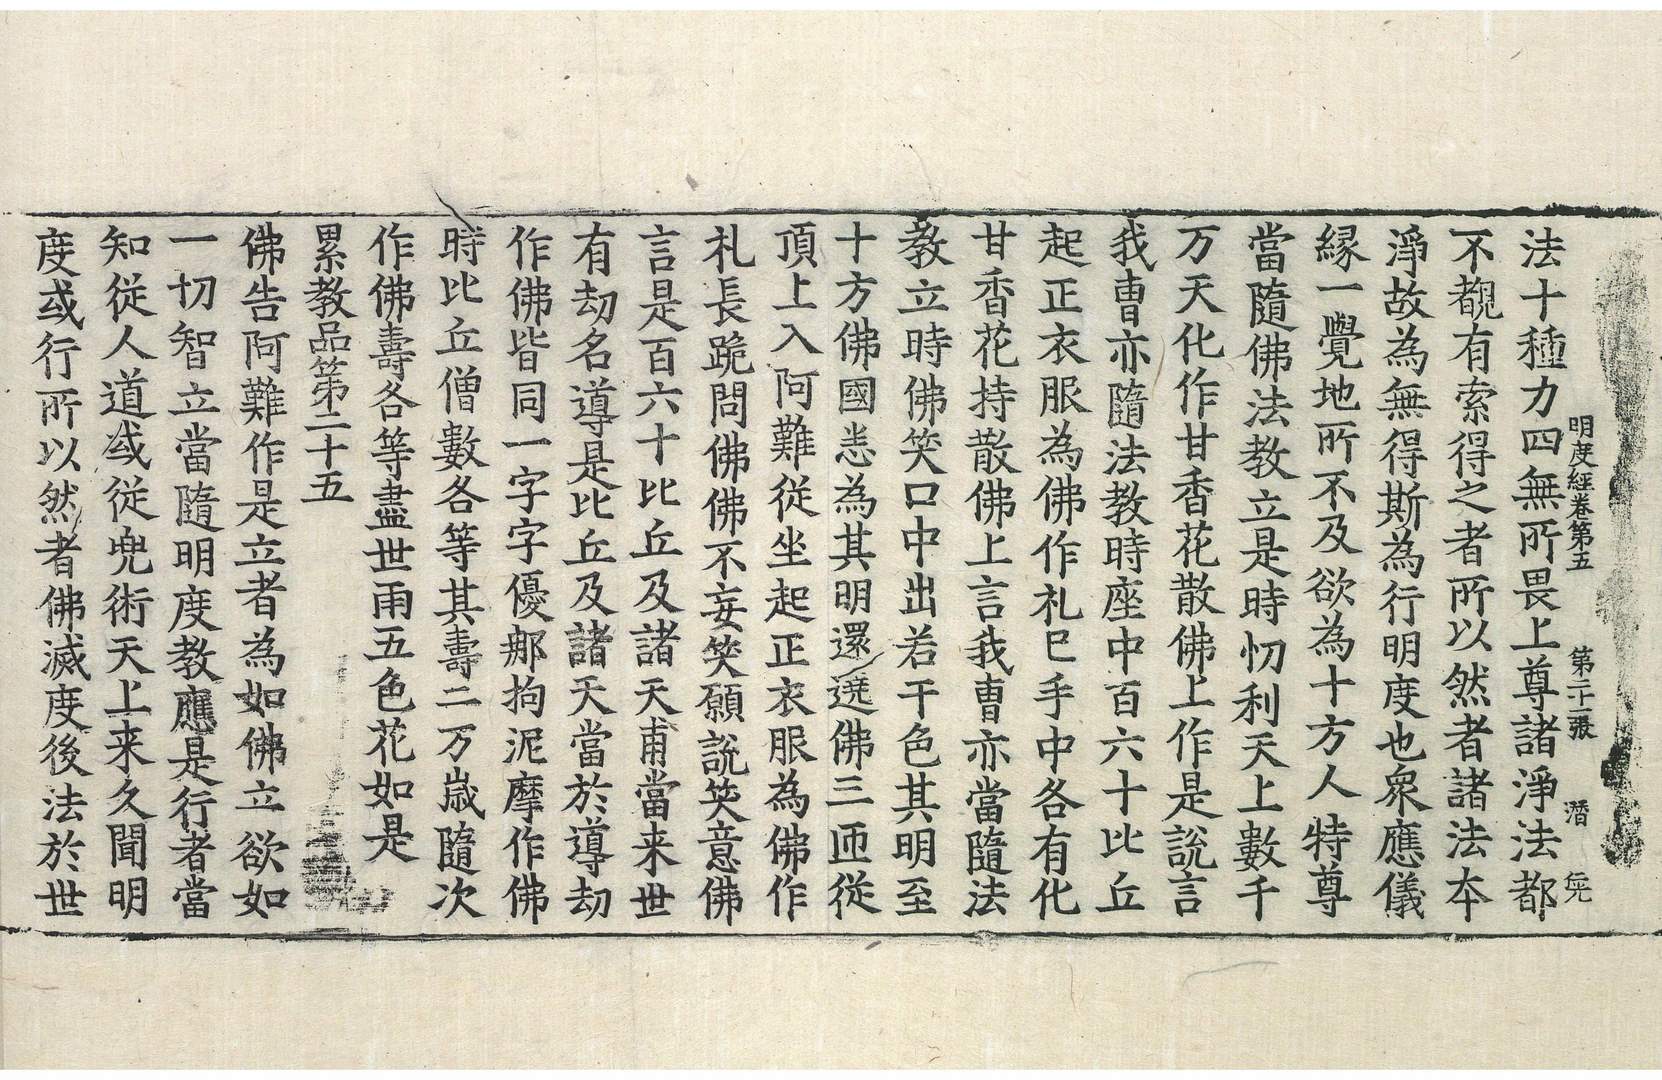 明度經卷第五 第二十一張 潛
法十種力四無所畏上尊諸淨法都
不覩有索得之者所以然者諸法本
淨故為無得斯為行明度也衆應儀
緣一覺地所不及欲為十方人特尊
當隨佛法教立是時忉利天上數千
万天化作甘香花散佛上作是說言
我曹亦隨法教時座中百六十比丘
起正衣服為佛作礼已手中各有化
甘香花持散佛上言我曹亦當隨法
教立時佛笑口中出若干色其明至
十方佛國悉為其明還遶佛三匝從
頂上入阿難從坐起正衣服為佛作
礼長跪問佛佛不妄笑願說笑意佛
言是百六十比丘及諸天甫當来世
有劫名導是比丘及諸天當於導劫
作佛皆同一字字優郍拘泥摩作佛
時比丘僧數各等其壽二万歲隨次
作佛壽各等盡世雨五色花如是
累教品第二十五
佛告阿難作是立者為如佛立欲如
一切智立當隨明度教應是行者當
知從人道或從兜術天上来久聞明
度或行所以然者佛滅度後法於世